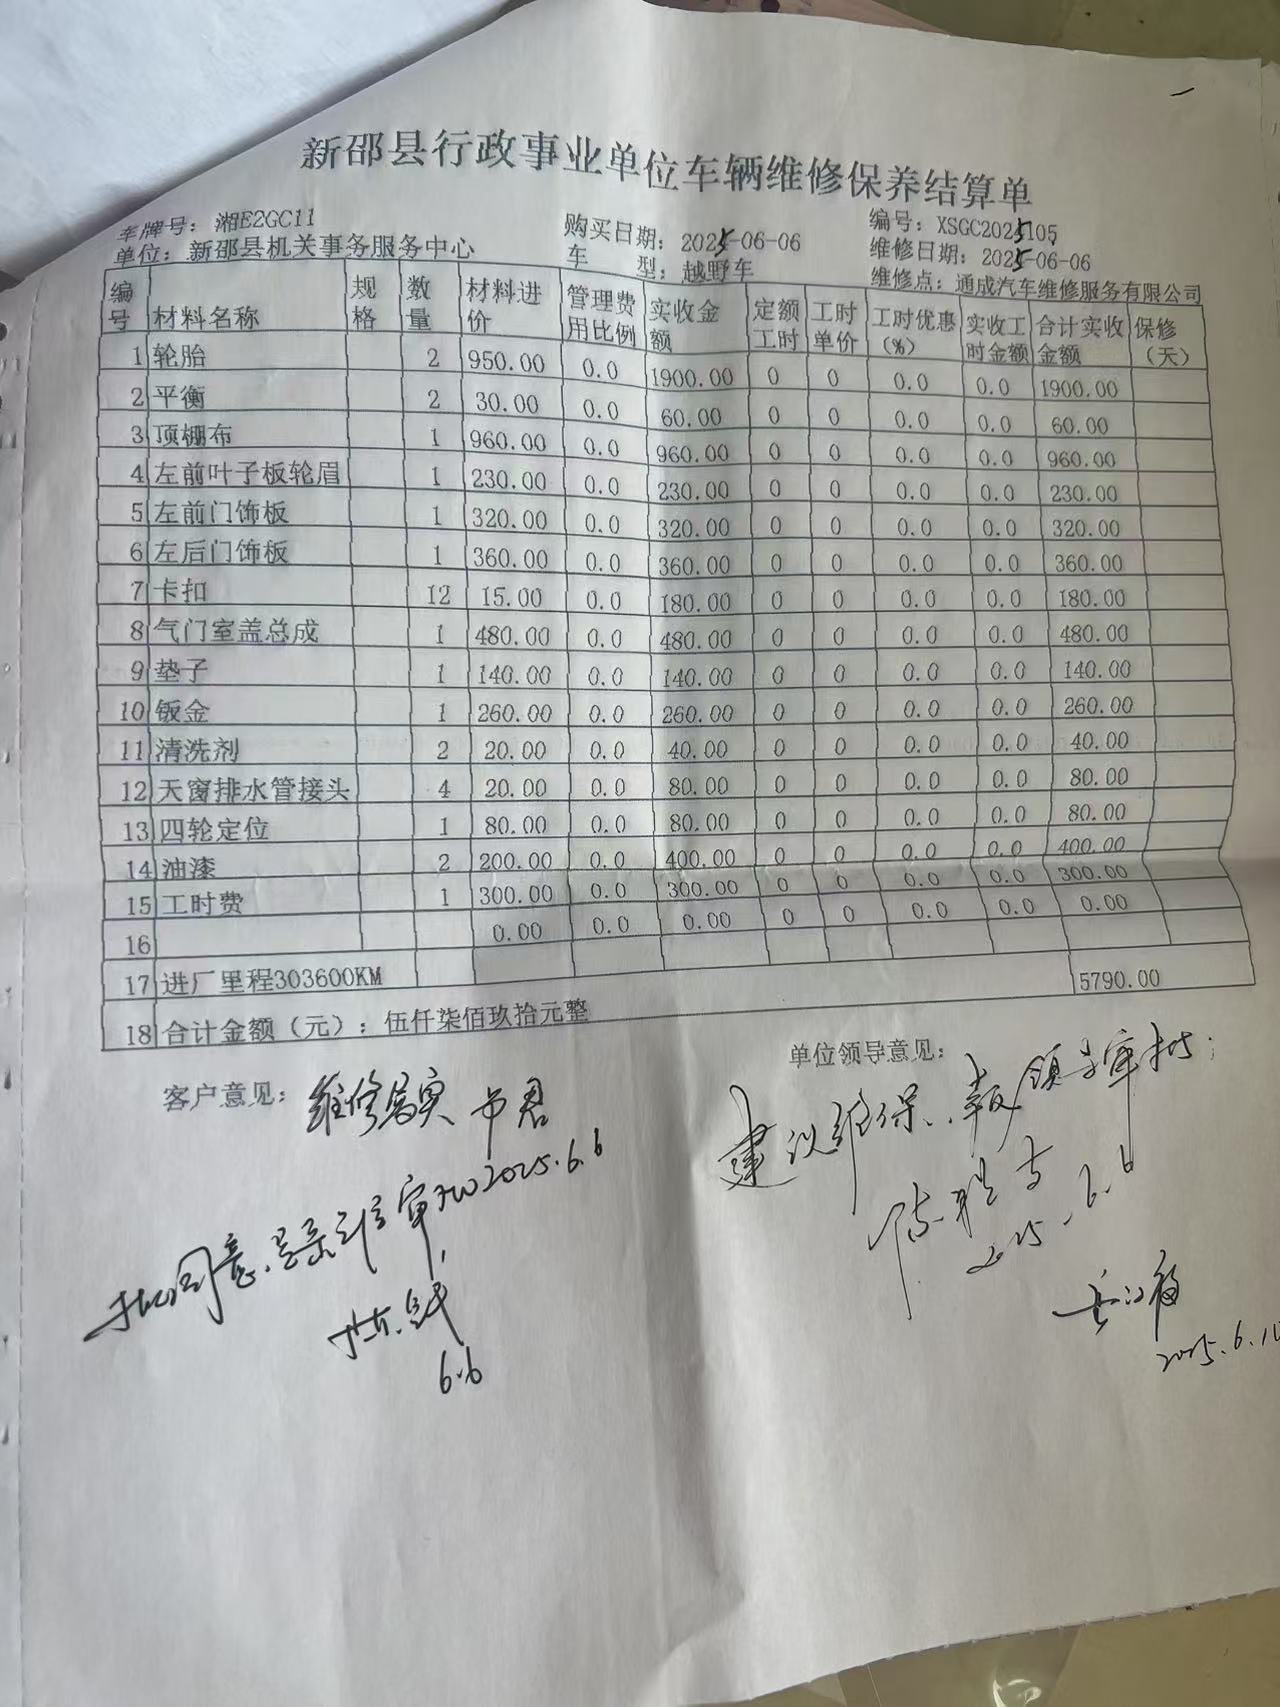 新邵县行政事业单位车辆维修保养结算单
车牌号：湘E2GC11 购买日期：2025-06-06 编号：XSGC2025105
单位：新邵县机关事务服务中心 车 型：越野车 维修日期：2025-06-06
维修点：通成汽车维修服务有限公司
编号 材料名称 规格 数量 材料进价 管理费用比例 实收金额 定额工时 工时单价 工时优惠（%） 实收工时金额 合计实收金额 保修（天）
1 轮胎 2 950.00 0.0 1900.00 0 0 0.0 0.0 1900.00
2 平衡 2 30.00 0.0 60.00 0 0 0.0 0.0 60.00
3 顶棚布 1 960.00 0.0 960.00 0 0 0.0 0.0 960.00
4 左前叶子板轮眉 1 230.00 0.0 230.00 0 0 0.0 0.0 230.00
5 左前门饰板 1 320.00 0.0 320.00 0 0 0.0 0.0 320.00
6 左后门饰板 1 360.00 0.0 360.00 0 0 0.0 0.0 360.00
7 卡扣 12 15.00 0.0 180.00 0 0 0.0 0.0 180.00
8 气门室盖总成 1 480.00 0.0 480.00 0 0 0.0 0.0 480.00
9 垫子 1 140.00 0.0 140.00 0 0 0.0 0.0 140.00
10 钣金 1 260.00 0.0 260.00 0 0 0.0 0.0 260.00
11 清洗剂 2 20.00 0.0 40.00 0 0 0.0 0.0 40.00
12 天窗排水管接头 4 20.00 0.0 80.00 0 0 0.0 0.0 80.00
13 四轮定位 1 80.00 0.0 80.00 0 0 0.0 0.0 80.00
14 油漆 2 200.00 0.0 400.00 0 0 0.0 0.0 400.00
15 工时费 1 300.00 0.0 300.00 0 0 0.0 0.0 300.00
16 0.00 0.0 0.00 0 0 0.0 0.0 0.00
17 进厂里程303600KM 5790.00
18 合计金额（元）：伍仟柒佰玖拾元整
客户意见：维修属实
2025.6.6
同意
6.6
单位领导意见：
建议维保，报领导审批；
2025.6.6
2025.6.